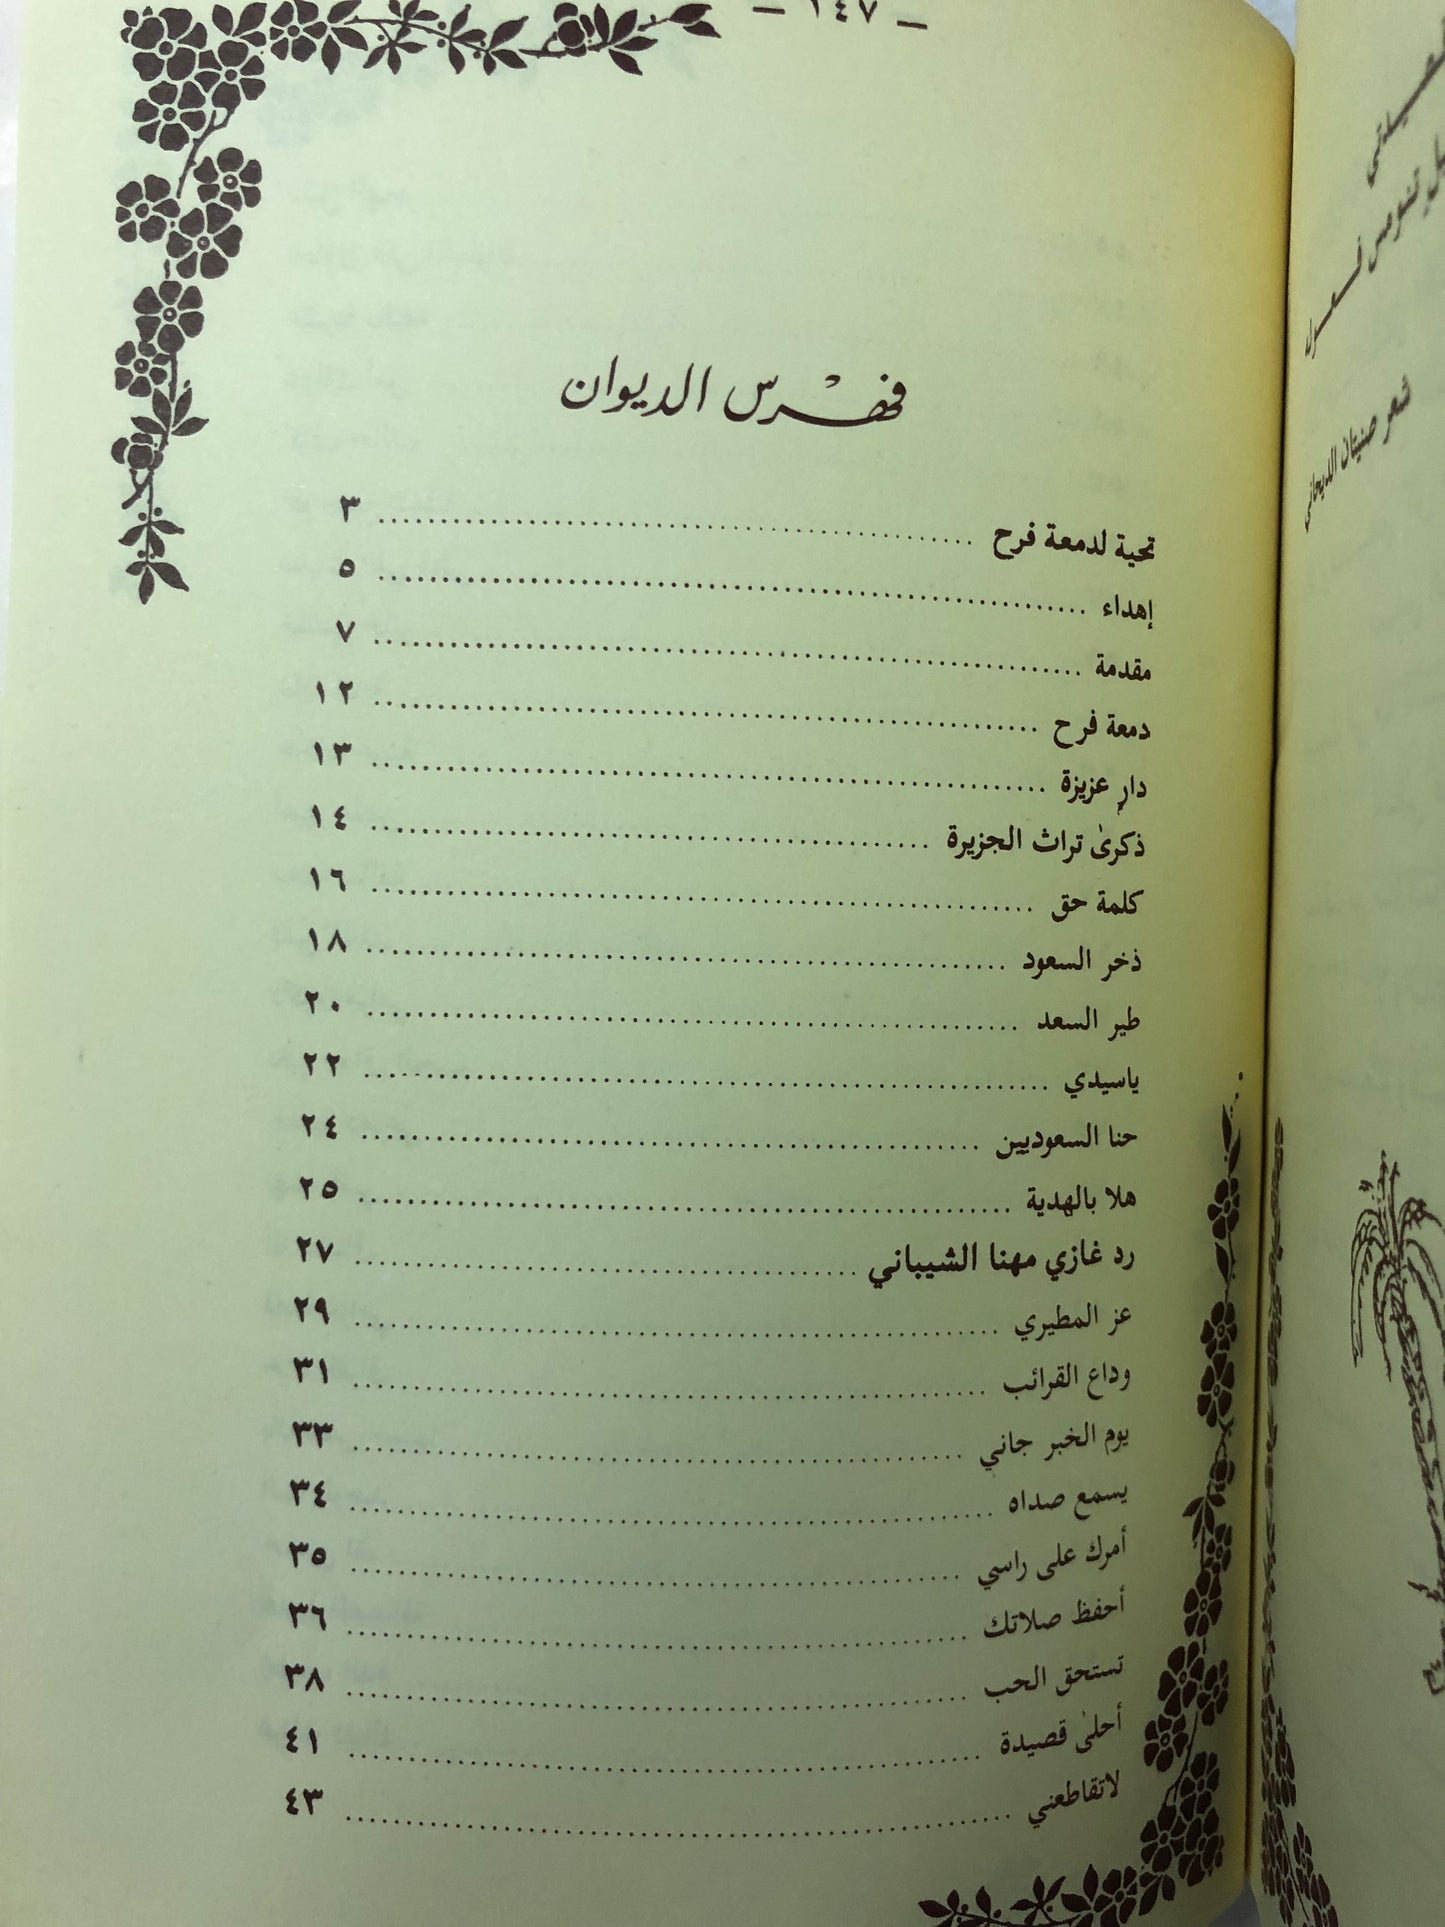 — ١٤٧ —
فهْرس الديوان
تحية لدمعة فرح ........ ٣
إهداء ........ ٥
مقدمة ........ ٧
دمعة فرح ........ ١٢
دار عزيزة ........ ١٣
ذكرىٰ تراث الجزيرة ........ ١٤
كلمة حق ........ ١٦
ذخر السعود ........ ١٨
طير السعد ........ ٢٠
ياسيدي ........ ٢٢
حنا السعوديين ........ ٢٤
هلا بالهدية ........ ٢٥
رد غازي مهنا الشيباني ........ ٢٧
عز المطيري ........ ٢٩
وداع القرائب ........ ٣١
يوم الخبر جاني ........ ٣٣
يسمع صداه ........ ٣٤
أمرك على راسي ........ ٣٥
أحفظ صلاتك ........ ٣٦
تستحق الحب ........ ٣٨
أحلىٰ قصيدة ........ ٤١
لاتقاطعني ........ ٤٣
شعر صنيتان الديحاني